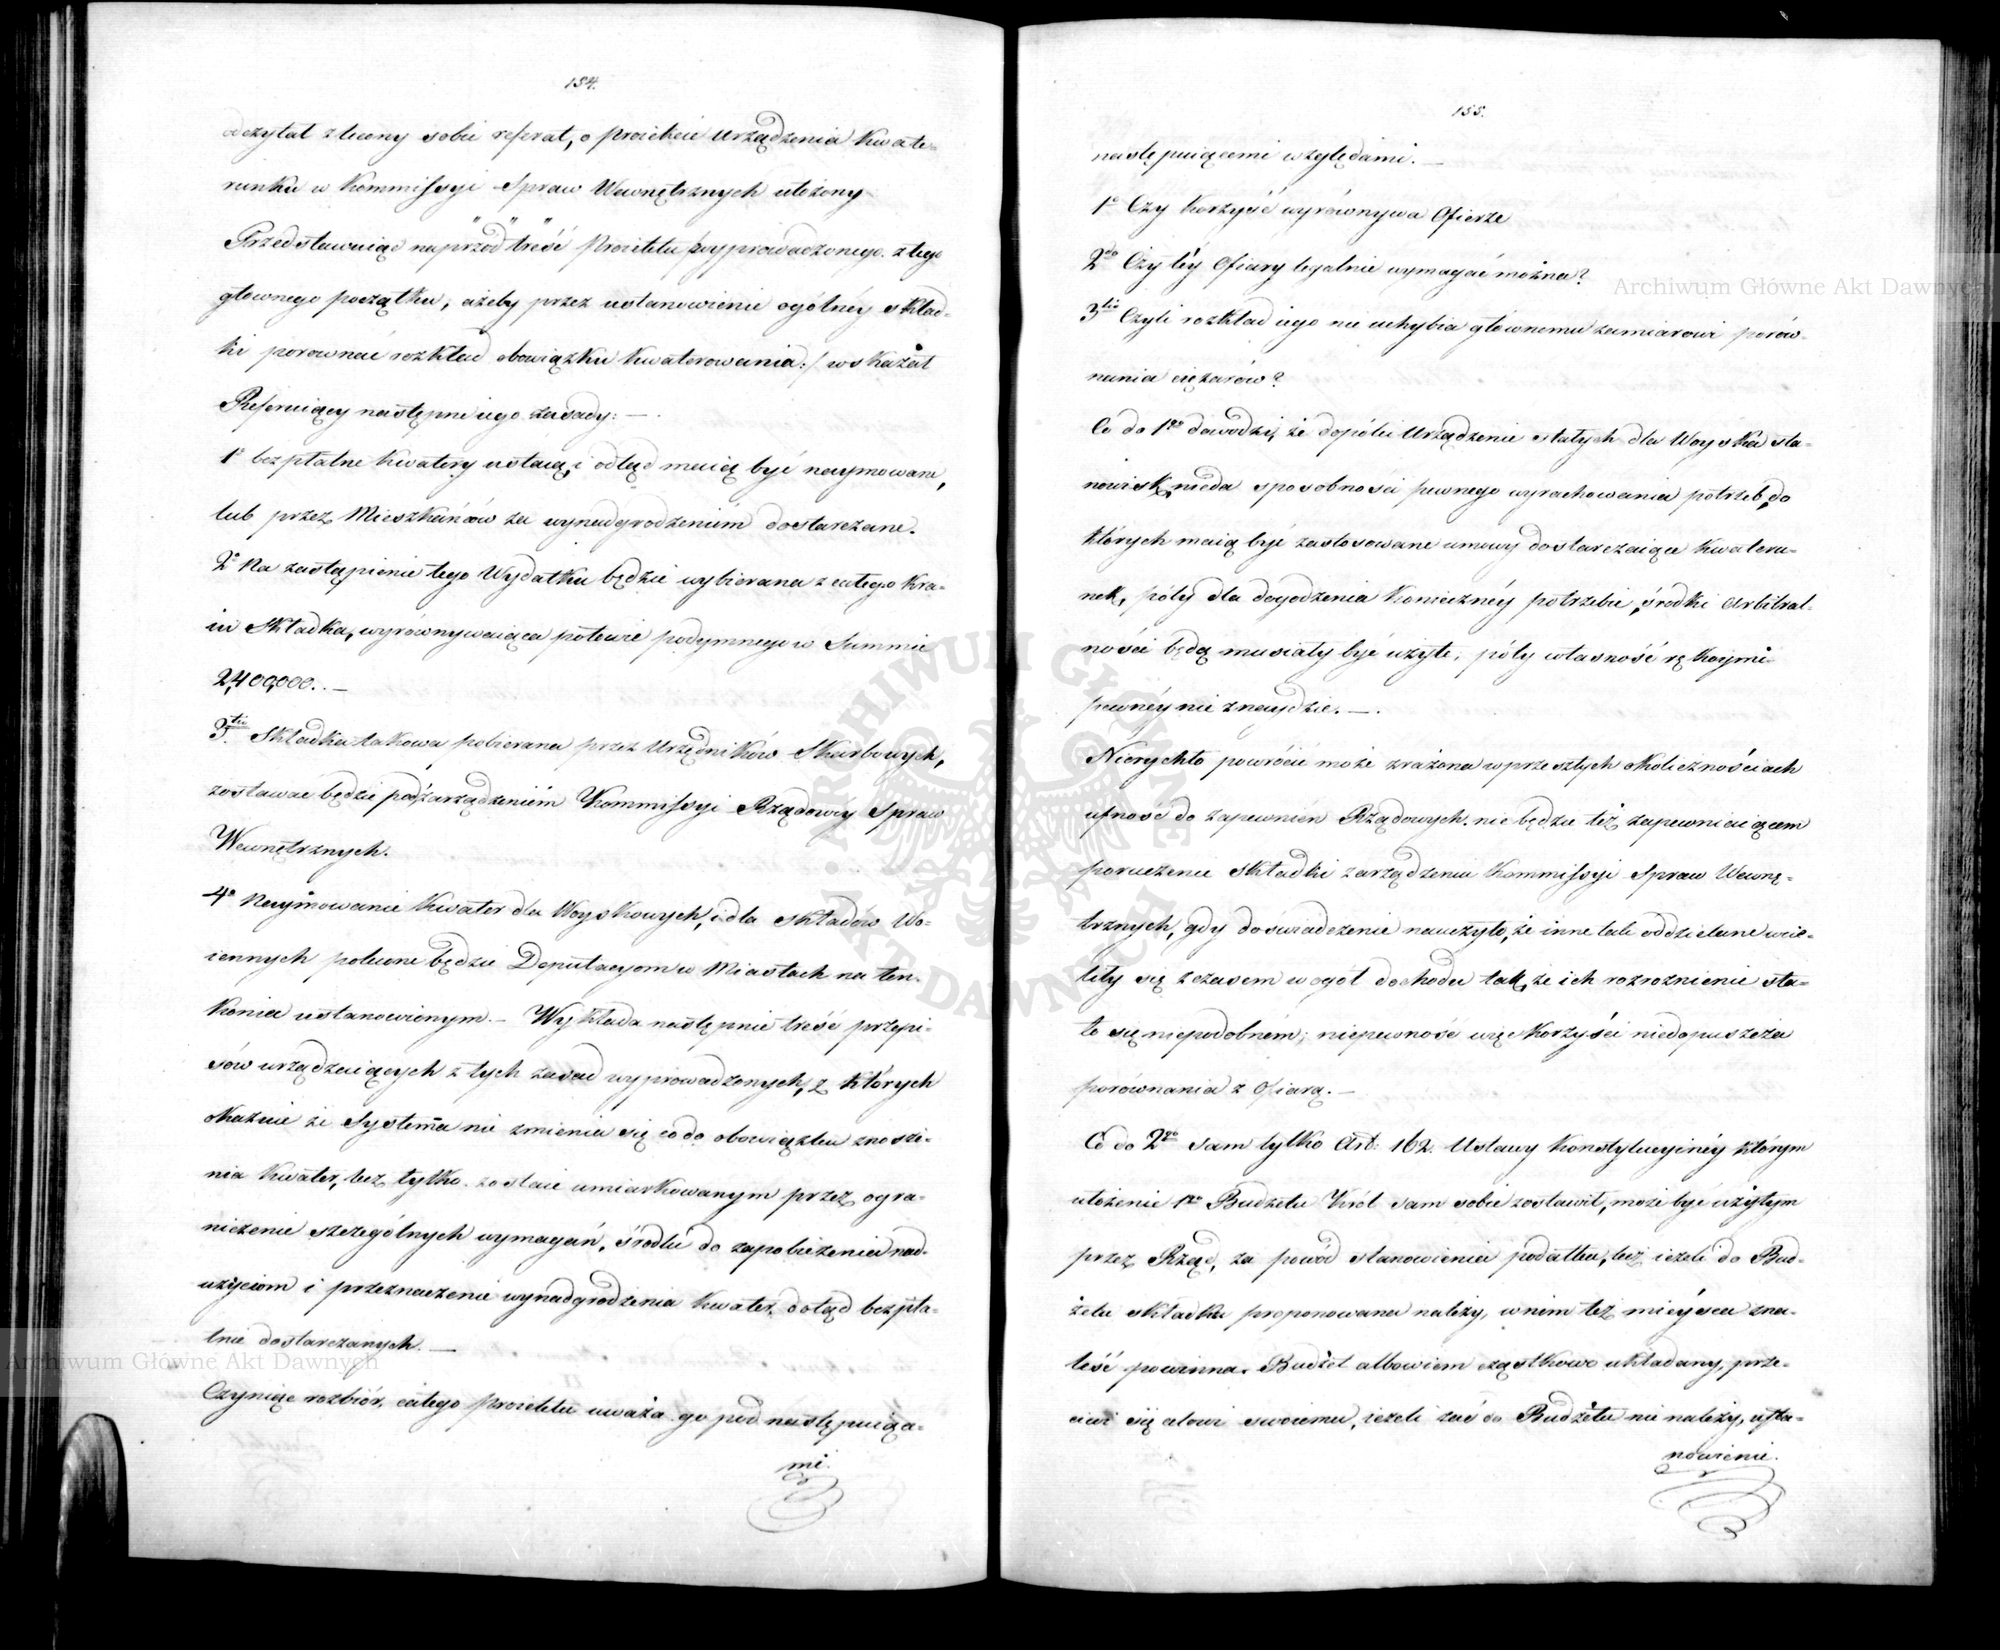 154.
odczytał zlecony sobie referat, o Proiekcie Urządzenia Kwate-
runku w Kommissyi Spraw Wewnętrznych ułożony
Przedstawuiąc naprzód treść Proiektu /:wyprowadzonego z tego
głównego początku, ażeby przez ustanowienie ogólnéy skład-
ki porownać rozkład obowiązku Kwaterowania:/ wskazał
Referuiący następne iego zasady: —
1º bezpłatne Kwatery ustaią, i odtąd maią być naymowane,
lub przez Mieszkańców za wynadgrodzeniém dostarczane.
2º Na zastąpienie tego Wydatku będzie wybierana z całego Kra-
iu Składka, wyrównywaiąca połowie podymnego w Summie
2,400,000. —
3tio Składka takowa pobierana przez Urzędników Skarbowych,
zostawać będzie pod zarządzeniém Kommissyi Rządowéy Spraw
Wewnętrznych.
4º Naymowanie Kwater dla Woyskowych, i dla składów Wo-
iennych polecone będzie Deputacyom w Miastach na ten
koniec ustanowionym. — Wykłada następnie treść przepi-
sów urządzaiących z tych zasad wyprowadzonych, z których
okazuie że Systema nie zmienia się co do obowiązku znosze-
nia Kwater, lecz tylko zostaie umiarkowanym przez ogra-
niczenie szczególnych wymagań, środki do zapobieżenia nad-
użyciom i przeznaczenie wynadgrodzenia Kwater, dotąd bezpła-
tnie dostarczanych. —
Czyniąc rozbiór całego Proiektu uważa go pod następuiąca-
mi.
155.
następuiącemi względami. —
1º Czy korzyść wyrównywa Ofierze
2do Czy téy Ofiary legalnie wymagać można?
3tio Czyli rozkład iego nie uchybia głównemu zamiarowi porów-
nania ciężarów?
Co do 1go dowodzi, że dopóki Urządzenie stałych dla Woyska sta-
nowisk, nieda sposobności pewnego wyrachowania potrzeb, do
których maią być zastosowane umowy dostarczaiące Kwateru-
nek, póty dla dogodzenia koniecznéy potrzebie, środki arbitral-
ności będą musiały być użyte, póty własność rękoymi
pewnéy nie znaydzie. —
Nierychło powrócić może zrażona w przeszłych okolicznościach
ufność do zapewnień Rządowych, nie będzie też zapewniaiącem
poruczenie składki zarządzeniu Kommissyi Spraw Wewnę-
trznych, gdy doświadczenie nauczyło, że inne tak oddzielane wcie-
liły się z czasem w ogół dochodu tak, że ich rozroznienie sta-
ło się niepodobném; niepewność więc korzyści niedopuszcza
porównania z Ofiarą. —
Co do 2go sam tylko Art: 162. Ustawy Konstytucyinéy którym
ułożenie 1go Budżetu Król sam sobie zostawił, może być użytym
przez Rząd, za powód stanowienia podatku, lecz ieżeli do Bud-
żetu składka proponowana należy, w nim też mieysce zna-
leść powinna. Budżet albowiem cząstkowo układany, prze-
ciwi się celowi swoiemu, ieżeli zaś do Budżetu nie należy, usta-
nowienie.
Archiwum Główne Akt Dawnych
Archiwum Główne Akt Dawnych
ARCHIWUM GŁÓWNE AKT DAWNYCH